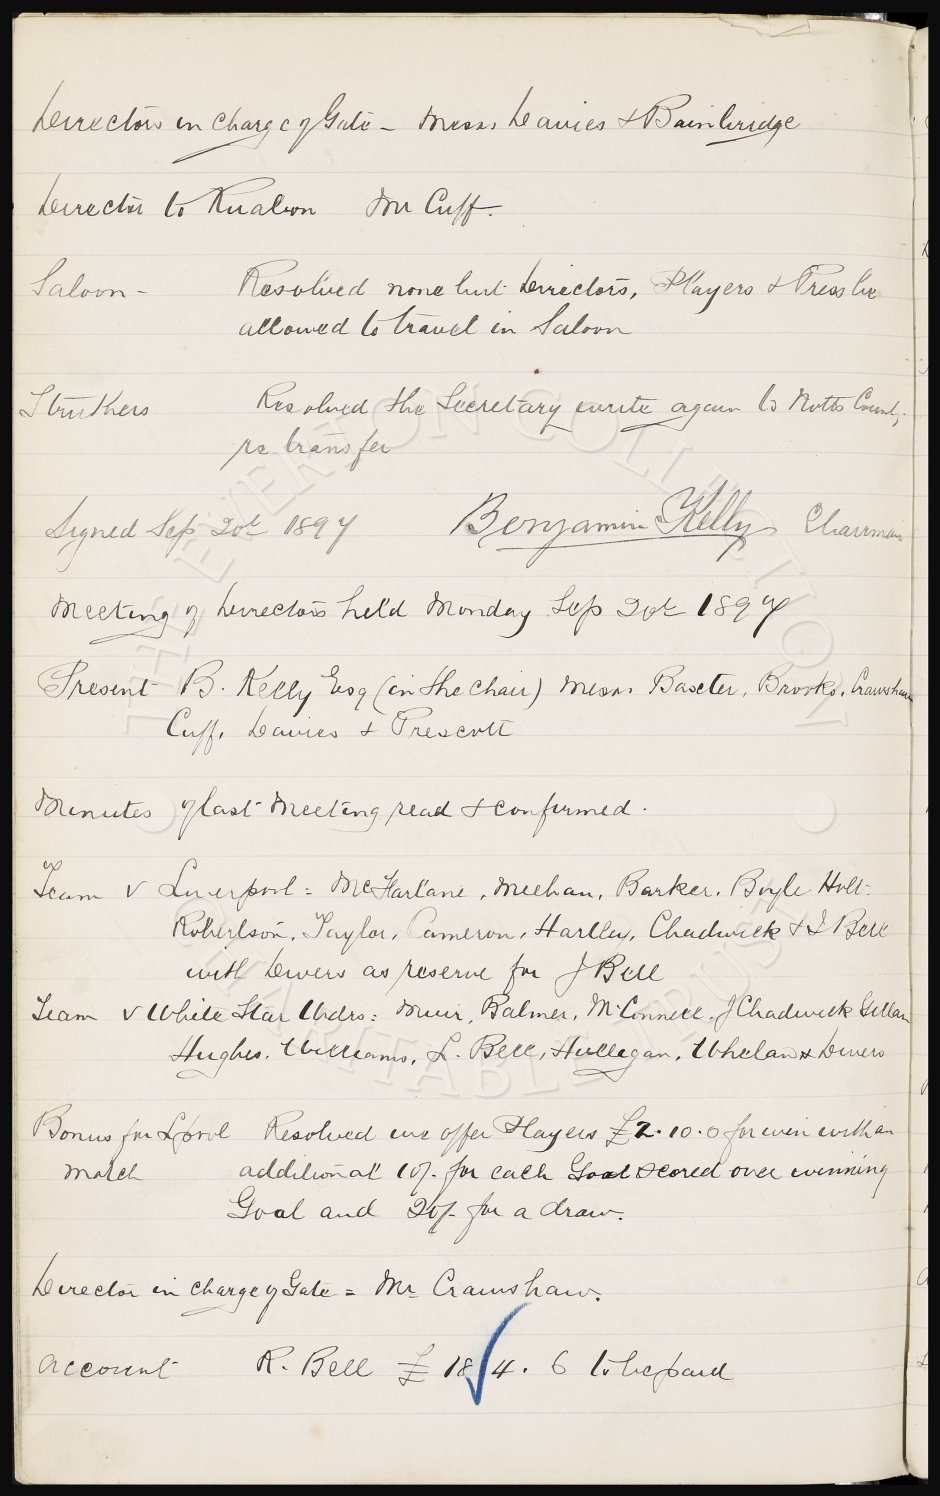 Directors in charge of Gate - Messrs Davies & Bainbridge
Director to Ruabon Mr Cuff.
Saloon - Resolved none but Directors, Players & Press be
allowed to travel in Saloon
Struthers Resolved the Secretary write again to Notts County
re transfer
Signed Sep 20th 1897 Benjamin Kelly Chairman
Meeting of Directors held Monday Sep 20th 1897
Present B. Kelly Esq (in the chair) Messrs Baxter, Brooks, Crawshaw
Cuff, Davies & Prescott
Minutes of last Meeting read & confirmed.
Team v Liverpool = McFarlane, Meehan, Barker, Boyle Holt
Robertson, Taylor, Cameron, Hartley, Chadwick & J Bell
with Divers as reserve for J Bell
Team v White Star Wdrs: Muir, Balmer, McConnell, J Chadwick Gillan
Hughes, Williams, L. Bell, Hulligan, Whelan & Divers
Bonus for L'pool Resolved we offer Players £2.10.0 for win with an
match additional 10/- for each Goal scored over winning
Goal and 20/- for a draw.
Director in charge of Gate = Mr Crawshaw.
Account R. Bell £18.4.6 to be paid
THE EVERTON COLLECTION
CHARITABLE TRUST